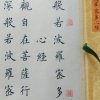 般若波羅蜜多
心經
觀自在菩薩行
深般若波羅蜜